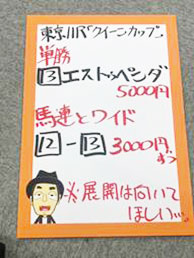 東京11R「クイーンカップ」
単勝
13 エストゥペンダ
5000円
馬連とワイド
12-13 3000円ずつ
※展開は向いて
ほしい…